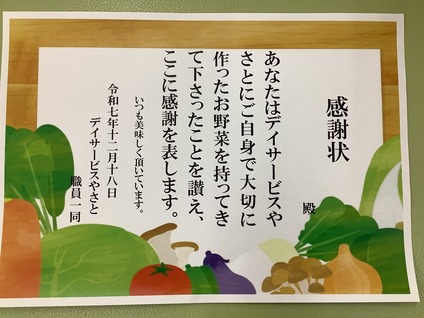 感謝状
殿
あなたはデイサービスや
さとにご自身で大切に
作ったお野菜を持ってき
て下さったことを讃え、
ここに感謝を表します。
いつも美味しく頂いています。
令和七年十二月十八日
デイサービスやさと
職員一同